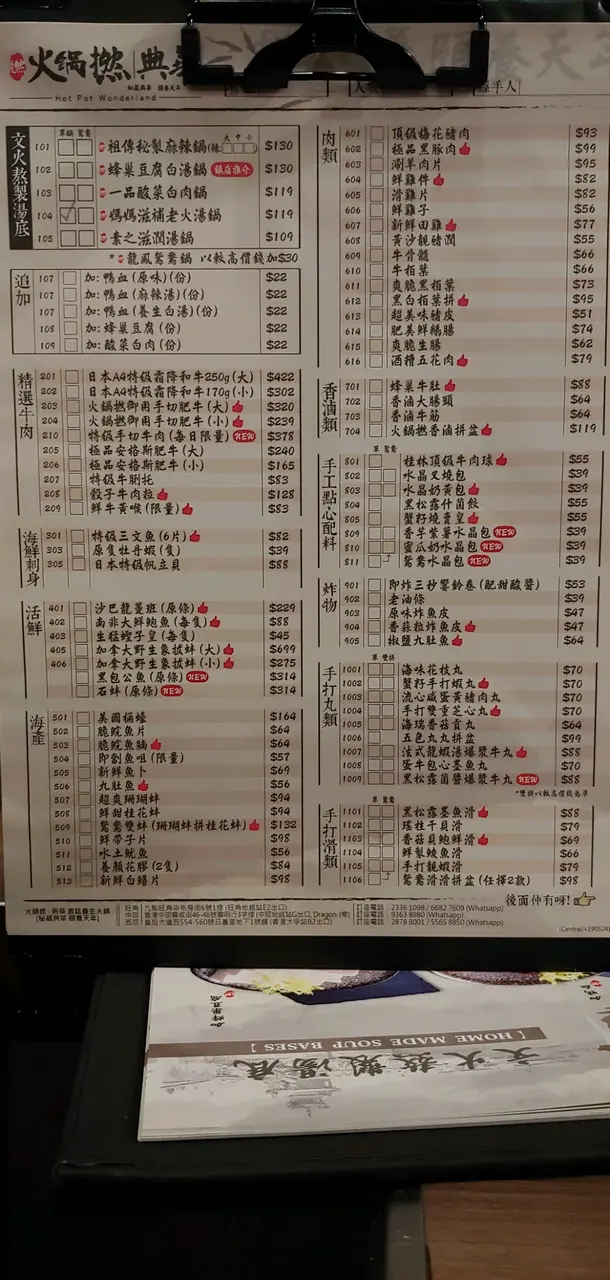 火鍋撚 典
Hot Pot Wonderland
經手人
文火熬製湯底
單鍋 鴛鴦
101 祖傳秘製麻辣鍋 大 中 小 $130
102 蜂巢豆腐白湯鍋 鎮店推介 $130
103 一品酸菜白肉鍋 $119
104 媽媽滋補老火湯鍋 $119
105 素之滋潤湯鍋 $109
*龍鳳鴛鴦鍋 以較高價錢加$30
追加
107 加: 鴨血(原味)(份) $22
107 加: 鴨血(麻辣湯)(份) $22
107 加: 鴨血(養生白湯)(份) $22
108 加: 蜂巢豆腐(份) $22
109 加: 酸菜白肉(份) $22
精選牛肉
201 日本A4特級霜降和牛250g(大) $422
202 日本A4特級霜降和牛170g(小) $302
203 火鍋撚御用手切肥牛(大) $320
204 火鍋撚御用手切肥牛(小) $239
210 特級手切牛肉(每日限量) NEW $378
205 極品安格斯肥牛(大) $240
206 極品安格斯肥牛(小) $165
207 特級牛脷托 $83
208 骰子牛肉粒 $128
209 鮮牛黃喉(限量) $83
海鮮刺身
301 特級三文魚(6片) $82
303 原隻牡丹蝦(隻) $39
305 日本特級帆立貝 $88
活鮮
401 沙巴龍躉班(原條) $229
402 南非大鮮鮑魚(每隻) $88
403 生猛蟶子皇(每隻) $45
405 加拿大野生象拔蚌(大) $699
406 加拿大野生象拔蚌(小) $275
黑包公魚(原條) NEW $314
石蚌(原條) NEW $314
海產
501 美國桶蠔 $164
502 脆鯇魚片 $64
503 脆鯇魚腩 $64
504 即劏魚咀(限量) $57
505 新鮮魚卜 $69
506 九肚魚 $56
507 超爽珊瑚蚌 $94
508 鮮甜桂花蚌 $94
509 鴛鴦雙蚌(珊瑚蚌拼桂花蚌) $132
510 鮮帶子片 $98
511 水土魷魚 $56
512 養顏花膠(2隻) $84
513 新鮮白鱔片 $98
肉類
601 頂級梅花豬肉 $93
602 極品黑豚肉 $99
603 涮羊肉片 $95
604 鮮雞件 $82
605 滑雞片 $82
606 鮮雞子 $56
607 新鮮田雞 $77
608 黃沙靚豬潤 $55
609 牛骨髓 $66
610 牛栢葉 $66
611 爽脆黑栢葉 $73
612 黑白栢葉拼 $95
613 超美味豬皮 $51
614 肥美鮮鵝腸 $74
615 爽脆生腸 $62
616 酒糟五花肉 $79
香滷類
701 蜂巢牛肚 $88
702 香滷大腸頭 $64
703 香滷牛筋 $64
704 火鍋撚香滷拼盆 $119
手工點心配料
單 鴛鴦
801 桂林頂級牛肉球 $55
802 水晶叉燒包 $39
803 水晶奶黃包 $39
804 黑松露什菌餃 $55
805 蟹籽燒賣皇 $55
809 香芋紫薯水晶包 NEW $39
810 蜜瓜奶水晶包 NEW $39
811 鴛鴦水晶包 NEW $39
炸物
901 即炸三秒響鈴卷(配甜酸醬) $53
902 老油條 $39
903 原味炸魚皮 $47
904 香蒜粒炸魚皮 $47
905 椒鹽九肚魚 $64
手打丸類
單 雙拼
1001 海味花枝丸 $70
1002 蟹籽手打蝦丸 $70
1003 流心咸蛋黃豬肉丸 $70
1004 手打雙重芝心丸 $70
1005 海瑞香菇貢丸 $64
1006 五色丸丸拼盆 $99
1007 法式龍蝦湯爆漿牛丸 $88
1008 蛋牛包心墨魚丸 $70
1009 黑松露菌醬爆漿牛丸 NEW $88
*雙拼以較高價錢為準
手打滑類
單 鴛鴦
1101 黑松露墨魚滑 $88
1102 瑤柱干貝滑 $79
1103 香菇貝鮑鮮滑 $69
1104 鮮製鯪魚滑 $66
1105 手打靚蝦滑 $79
1106 鴛鴦滑滑拼盆(任擇2款) $98
後面仲有呀!
火鍋撚．典萃 宮廷養生火鍋
[秘藏典萃 頤養天年]
旺角 九龍旺角染布房街6號1樓 (旺角地鐵站E2出口)
中環 香港中環威靈頓街46-48號威明行3字樓 (中環地鐵站G出口, Dragon-i旁)
西環 皇后大道西554-560號日富里地下1號舖 (香港大學站B2出口)
訂座電話：2336 1098 / 6682 7609 (Whatsapp)
訂座電話：9363 8980 (Whatsapp)
訂座電話：2878 8001 / 5565 8850 (Whatsapp)
(Central/v190524)
[ HOME MADE SOUP BASES ]
文火熬製湯底